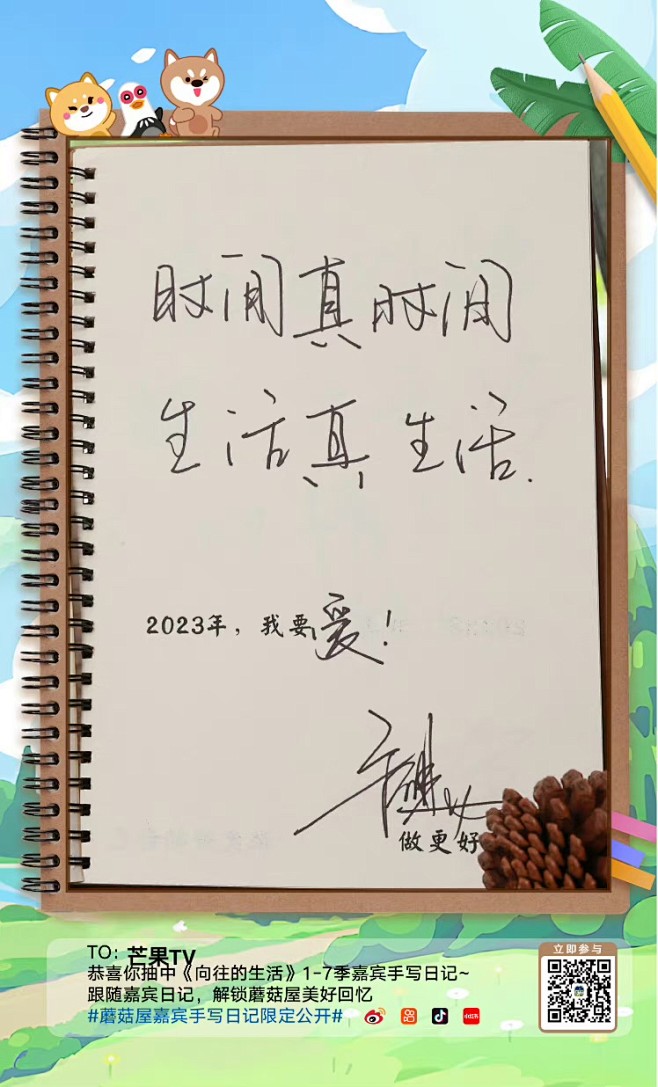 时间真时间
生活真生活.
2023年，我要爱！
做更好
TO：芒果TV
恭喜你抽中《向往的生活》1-7季嘉宾手写日记~
跟随嘉宾日记，解锁蘑菇屋美好回忆
#蘑菇屋嘉宾手写日记限定公开#
立即参与